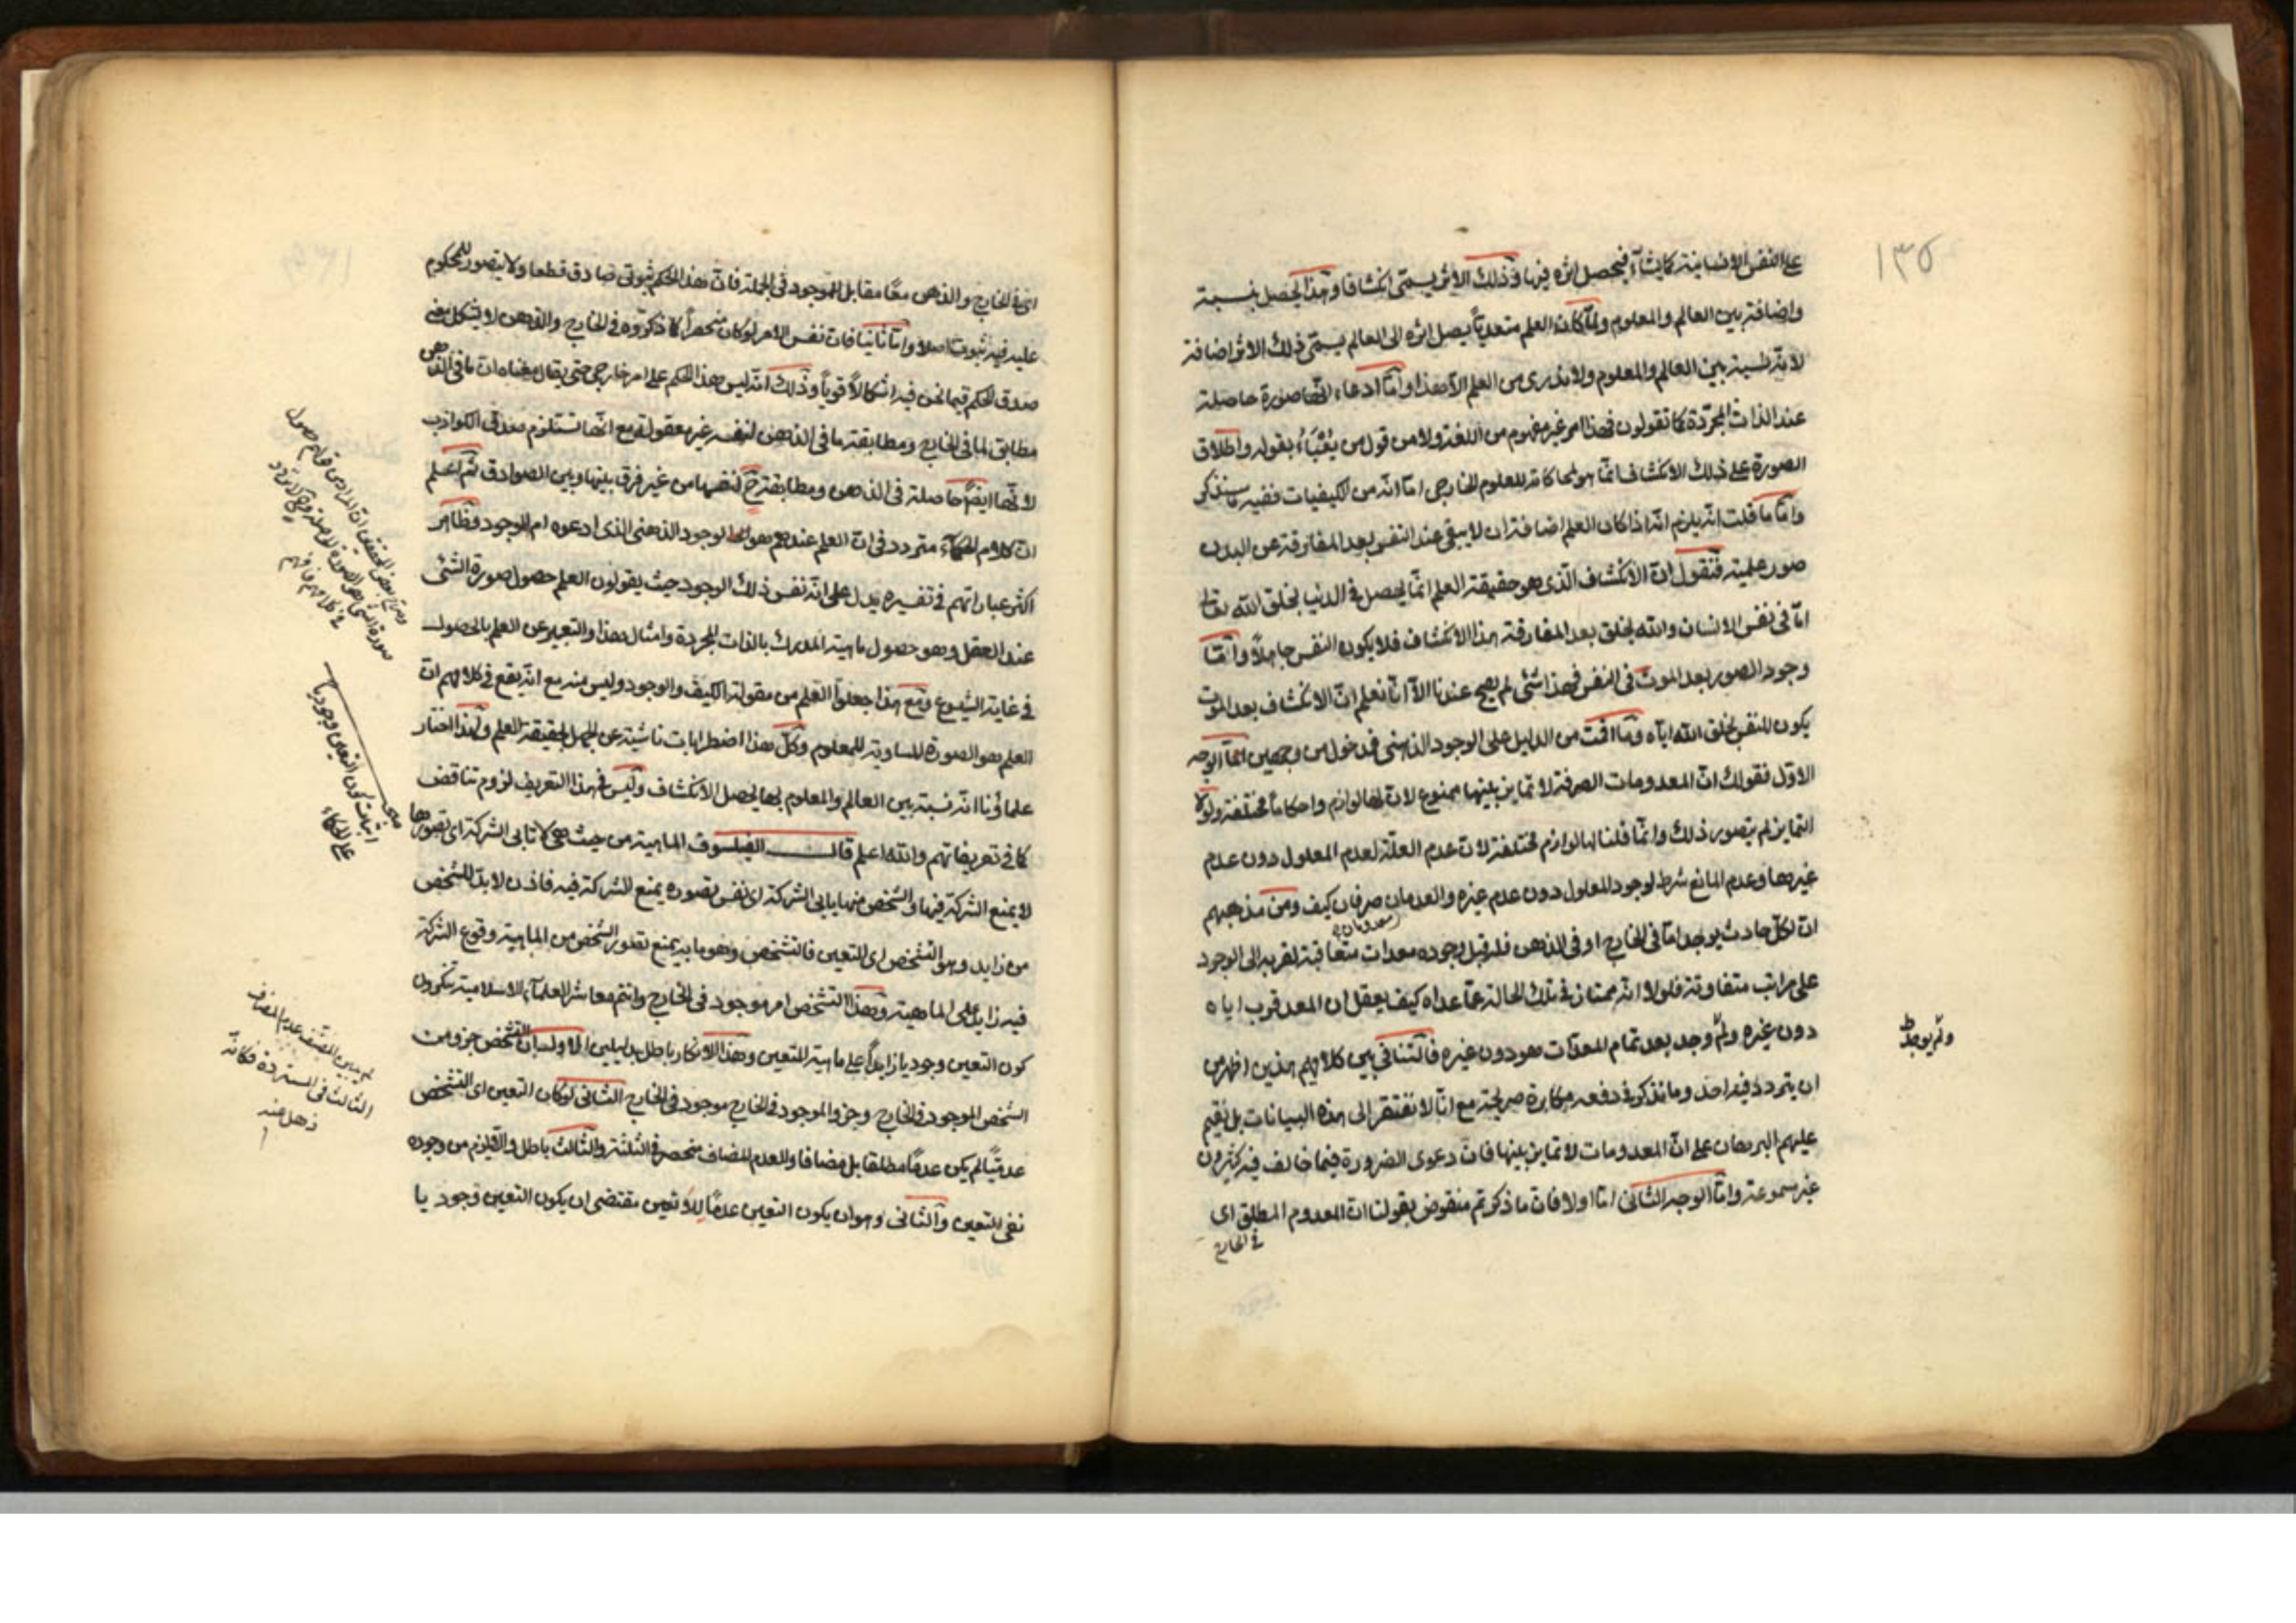 ١٣٥
على النفس الانسانية كما يشاء فيحصل اثره فيها وذلك الاثر يسمى انكشافا وهذا يحصل بنسبة
واضافة بين العالم والمعلوم ولما كان العلم متعديا يصل اثره الى العالم يسمى ذلك الاثر اضافة
لانه نسبة بين العالم والمعلوم ولا ندرى من العلم الا هذا واما ادعاء انها صورة حاصلة
عند الذات المجردة كما تقولون فهذا امر غير مفهوم من اللغة ولا من قول من يعبأ بقوله واطلاق
الصورة على ذلك الانكشاف انما هو لمحاكاته للمعلوم الخارجى اما انه من الكيفيات ففيه ما سنذكر
واما ما قلت انه يلزم انه اذا كان العلم اضافة ان لا يبقى عند النفس بعد المفارقة عن البدن
صور علمية فنقول ان الانكشاف الذى هو حقيقة العلم انما يحصل فى الدنيا بخلق الله تعالى
اما فى نفس الانسان والله يخلق بعد المفارقة هذا الانكشاف فلا يكون النفس جاهلا واما
وجود الصور بعد الموت فى النفس فهذا شئ لم يصح عندنا الا انا نعلم ان الانكشاف بعد الموت
يكون للنفس بخلق الله اياه وما اقمت من الدليل على الوجود الذهنى فمدخول من وجهين اما الوجه
الاول فنقول ان المعدومات الصرفة لا تمايز بينها ممنوع لان لها لوازم واحكاما مختلفة ولولا
التمايز لم يتصور ذلك وانما قلنا لها لوازم مختلفة لان عدم العلة لعدم المعلول دون عدم
غيرها وعدم المانع شرط لوجود المعلول دون عدم غيره والعدمان صرفان كيف ومن مذهبهم
ان لكل حادث يوجد اما فى الخارج او فى الذهن فله قبل وجوده معدات متعاقبة تقربه الى الوجود
على مراتب متفاوتة فلولا انه ممتاز فى تلك الحالة عما عداه كيف يعقل ان المعد قرب اياه
دون غيره ولم وجد بعد تمام المعدات هو دون غيره فالتنافى بين كلاميهم هذين اظهر من
ان يتردد فيه احد وما نذكر فى دفعه مكابرة صريحة مع انا لا نفتقر الى هذه البيانات بل نقيم
عليهم البرهان على ان المعدومات لا تمايز بينها فان دعوى الضرورة فيما خالف فيه كثيرون
غير مسموعة واما الوجه الثانى اما اولا فان ما ذكرتم منقوض بقولنا ان المعدوم المطلق اى
فى الخارج
ولم يوجد
اى فى الخارج والذهن معا مقابل للموجود فى الجملة فان هذا الحكم ثبوتى صادق قطعا ولا يتصور للمحكوم
عليه فيه ثبوت اصلا واما ثانيا فان نفس الامر لو كان منحصرا كما ذكروه فى الخارج والذهن لا يشكل معنى
صدق الحكم فيما نحن فيه اشكالا قويا وذلك انه ليس هذا الحكم على امر خارجى حتى يقال معناه ان ما فى الذهن
مطابق لما فى الخارج ومطابقة ما فى الذهن لنفسه غير معقولة مع انها تستلزم صدق الكواذب
لانها ايضا حاصلة فى الذهن ومطابقة ح لنفسها من غير فرق بينها وبين الصوادق ثم اعلم
ان كلام الحكماء متردد فى ان العلم عندهم هو الوجود الذهنى الذى ادعوه ام الموجود فظاهر
اكثر عباراتهم فى تفسيره يدل على انه نفس ذلك الوجود حيث يقولون العلم حصول صورة الشئ
عند العقل وهو حصول ماهية المدرك بالذات المجردة وامثال هذا والتعبير عن العلم بالحصول
فى غاية الشيوع ومع هذا جعلوا العلم من مقولة الكيف والوجود وليس منه مع انه يقع فى كلامهم ان
العلم هو الصورة المساوية للمعلوم وكل هذا اضطرابات ناشئة عن الجهل بحقيقة العلم ولهذا اختار
علماؤنا انه نسبة بين العالم والمعلوم بها يحصل الانكشاف وليس فى هذا التعريف لزوم تناقض
كما فى تعريفاتهم والله اعلم قال الفيلسوف الماهية من حيث هى لا تابى الشركة اى تصورها
لا يمنع الشركة فيها والشخص منها يابى الشركة اى نفس تصوره يمنع الشركة فيه فاذن لا بد للشخص
من زايد وهو التشخص اى التعين فالتشخص وهو ما به يمنع تصور الشخص من الماهية وقوع الشركة
فيه زايد على الماهية وهذا التشخص امر موجود فى الخارج وانتم معاشر العلماء الاسلامية تنكرون
كون التعين وجوديا زايدا على ماهية المتعين وهذا الانكار باطل بدليلين الاول ان التشخص جزو من
الشخص الموجود فى الخارج وجزو الموجود فى الخارج موجود فى الخارج الثانى لو كان التعين اى التشخص
عدميا لم يكن عدما مطلقا بل مضافا والعدم المضاف منحصر فى الثلثة والثالث باطل والا يلزم من وجوده
نفى للتعين والثانى وهو ان يكون التعين عدما للا تعين مقتضى ان يكون التعين وجوديا
اثبات كون التعين وجوديا
على الحكماء
لم يبين المصنف عدم المضاف
الثالث فى المستردة فكانه
ذهل منه